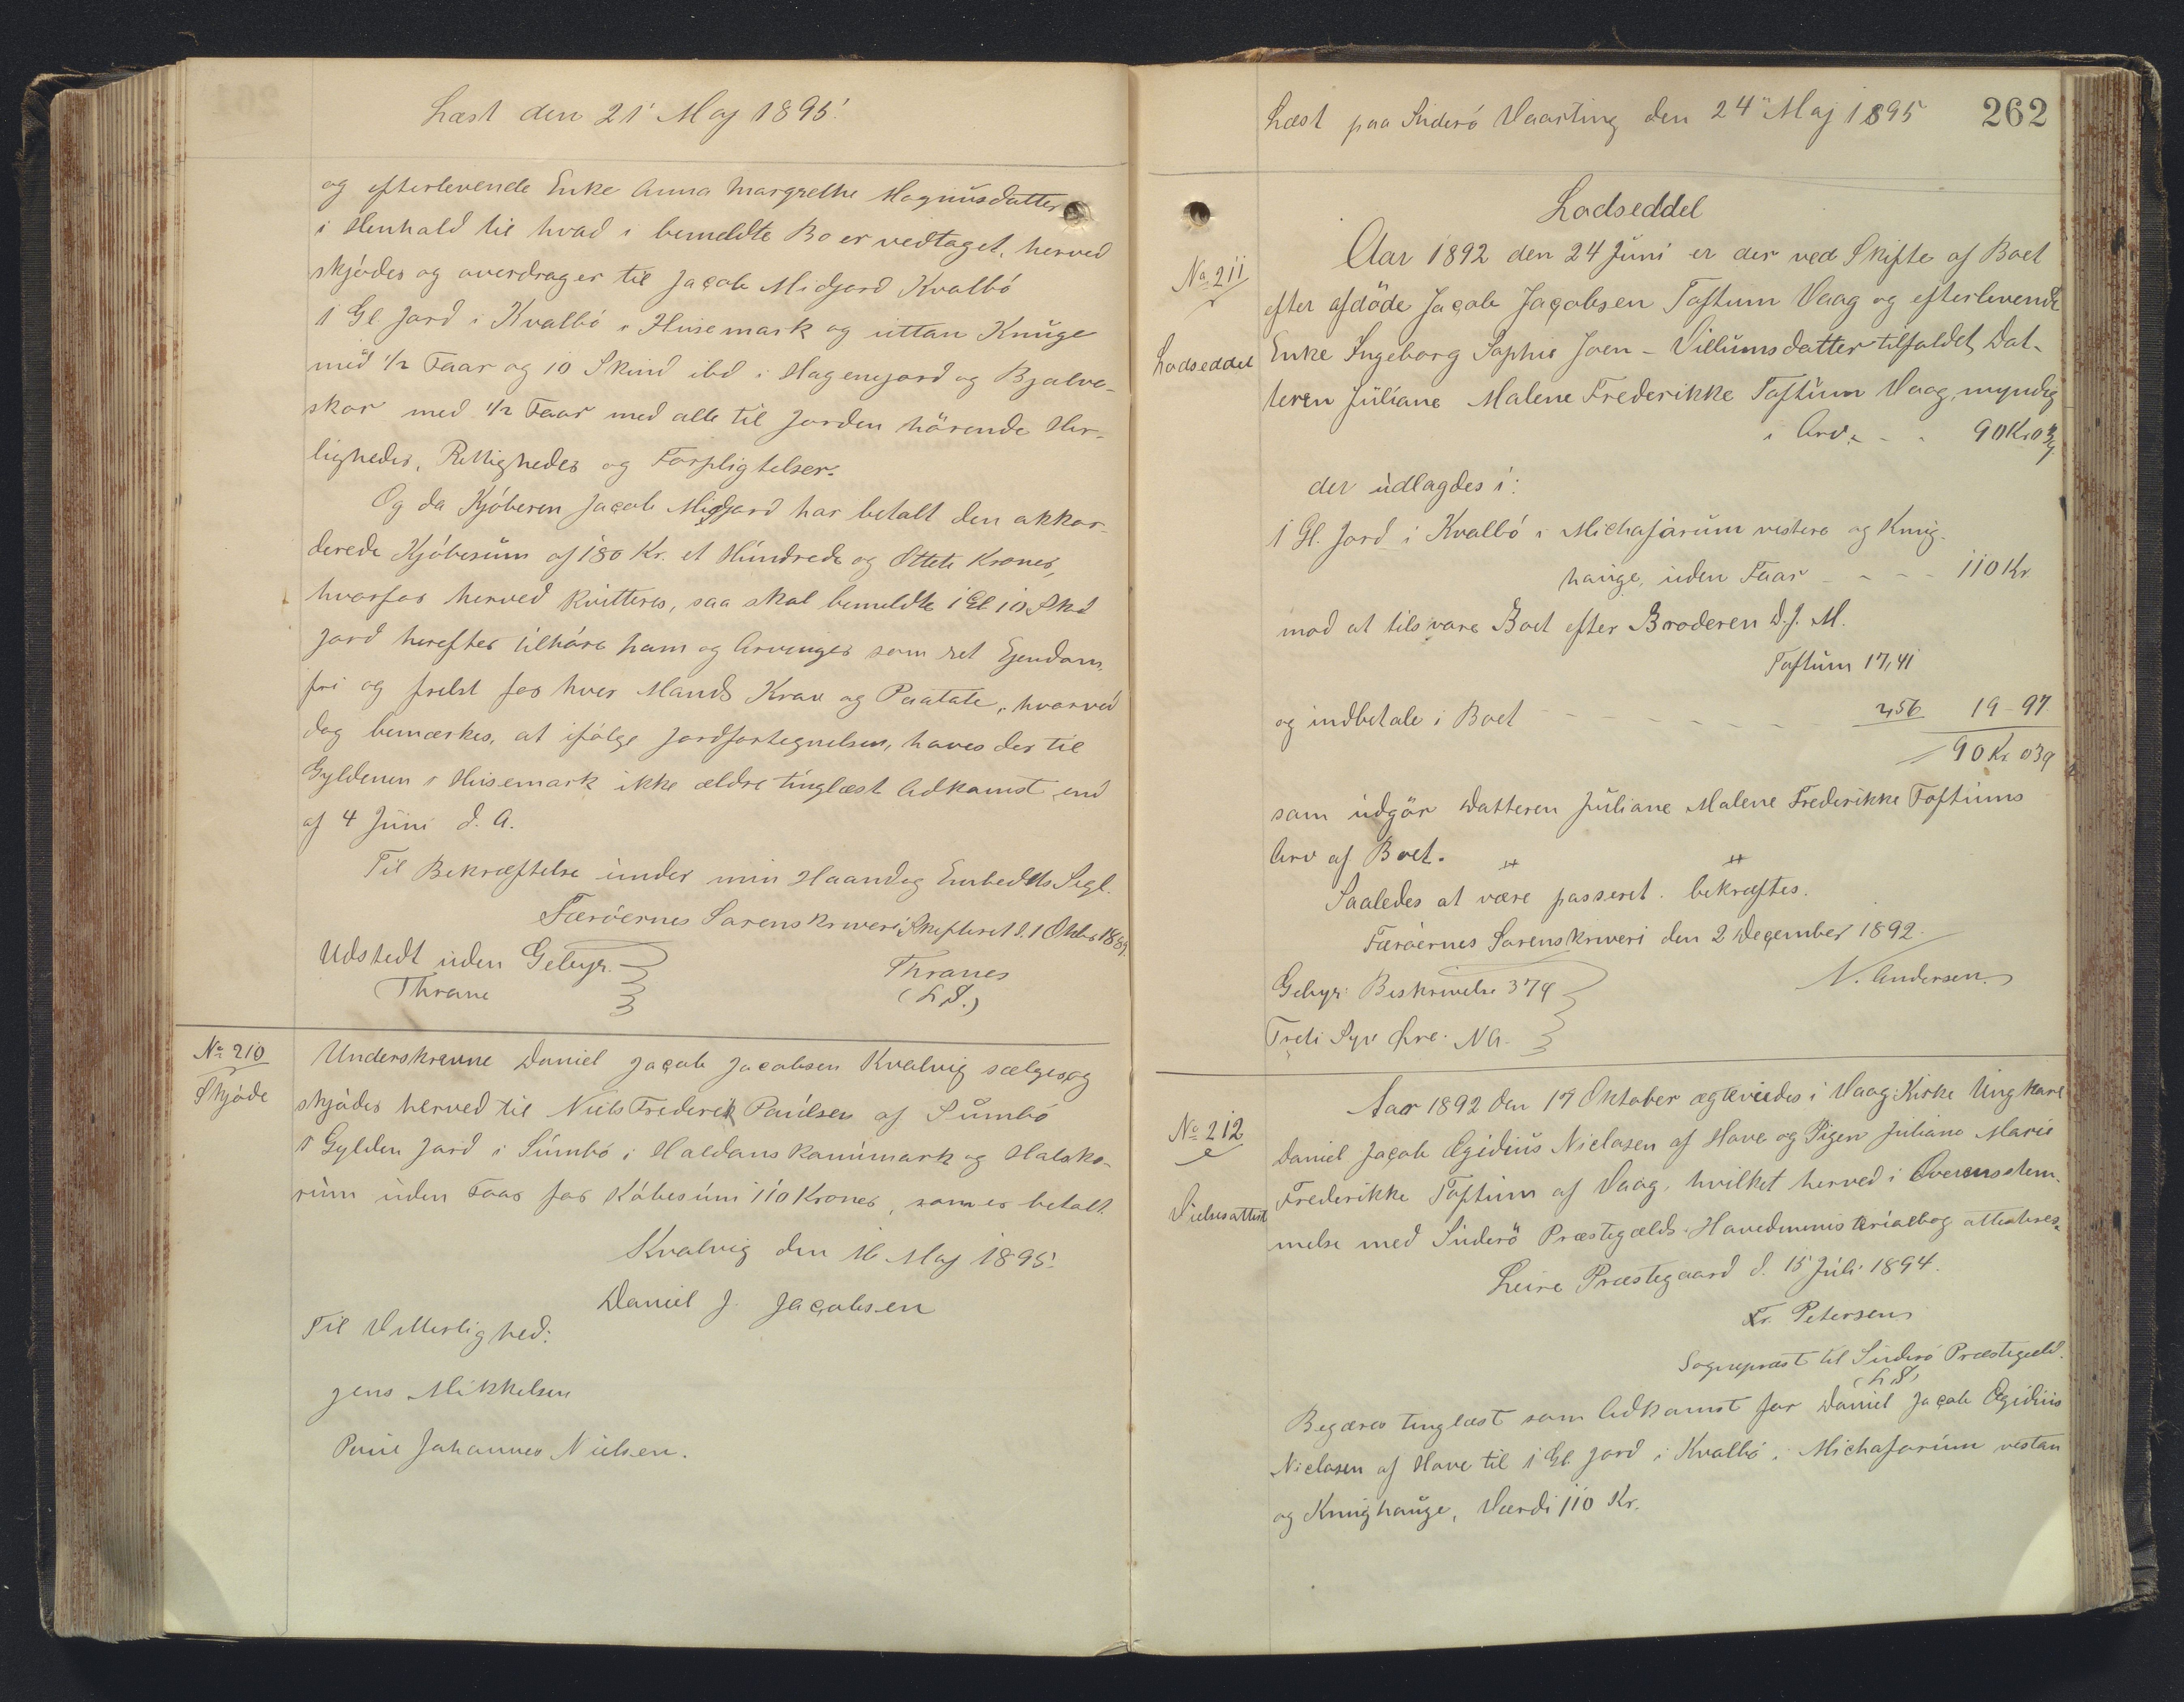 Læst den 21' Maj 1895.
og efterlevende Enke Anna Margrethe Magnusdatter
i Henhold til hvad i bemeldte Bo er vedtaget, herved
skjøder og overdrager til Jacob Midjord Kvalbø
1 Gl Jord i Kvalbø i Husemark og uttan Knuge
med 1/2 Faar og 10 Skind ibd i Hagenejord og Bjalve-
skor med 1/2 Faar med alle til Jorden hörende Her-
ligheder, Rettigheder og Forpligtelser.
Og da Kjøberen Jacob Midjord har betalt den akkor-
derede Kjøbesum af 180 Kr. et Hundrede og Ottete Kroner,
hvorfor herved kvitteres, saa skal bemeldte 1 Gl 10 Skd
Jord herefter tilhøre ham og Arvinger som ret Ejendom,
fri og frelst for hver Mands Krav og Paatale, hvorved
dog bemærkes, at ifølge Jordfortegnelsen, haves der til
Gyldenen i Husemark ikke ældre tinglæst Adkomst end
af 4 Juni d. A.
Til Bekræftelse under min Haand og Embeds Segl.
Færøernes Sorenskriveri, Skifteret d. 1 Oktbr 1889.
Udstedt uden Gebyr. Thranes
Thrane (L.S.)
No 210 Underskrevne Daniel Jacob Jacobsen Kvalvig sælger og
Skjøde skjøder herved til Niels Frederik Poulsen af Sumbø
1 Gylden Jord i Sumbø i Haldans kanumark og Halsko-
rum uden Faar for Købesum 110 Kroner, som er betalt.
Kvalvig den 16 Maj 1895.
Daniel J. Jacobsen
Til Vitterlighed:
Jens Mikkelsen
Poul Johannes Nielsen.
Læst paa Suderø Vaarting den 24" Maj 1895 262
Lodseddel
No 211 Aar 1892 den 24 Juni er der ved Skifte af Boet
efter afdøde Jacob Jacobsen Toftum Vaag og efterlevende
Lodseddel Enke Ingeborg Sophie Joen-Villumsdatter tilfaldet Dat-
teren Juliane Malene Frederikke Toftum Vaag, myndig
i Arv - - 90 Kr 03 g
der udlagdes i:
1 Gl. Jord i Kvalbø i Michafarum vestere og Knug-
hauge, uden Faar - - - - 110 Kr
mod at tilsvare Boet efter Broderen D. J. M.
Toftum 17,41
og indbetale i Boet - - - - - - 2,56 19-97
90 Kr 03 g
som udgør Datteren Juliane Malene Frederikke Toftums
Arv af Boet.
Saaledes at være passeret bekræftes.
Færøernes Sorenskriveri den 2 December 1892.
N. Andersen
Gebyr: Beskrivelse 37 g
Treti Syv Øre: NA.
No 212 Aar 1892 den 17 Oktober ægteviedes i Vaag Kirke Ungkarl
Daniel Jacob Egidius Niclasen af Hove og Pigen Juliane Marie
Vielsesattest Frederikke Toftum af Vaag, hvilket herved i Overensstem-
melse med Suderø Præstegælds Hovedministerialbog attesteres.
Leire Præstegaard d. 15 Juli 1894.
Fr. Petersen
Sognepræst til Suderø Præstegæld.
(L.S.)
Begæres tinglæst som Adkomst for Daniel Jacob Egidius
Niclasen af Hove til 1 Gl. Jord i Kvalbø i Michafarum vestan
og Knughauge, Værdi 110 Kr.